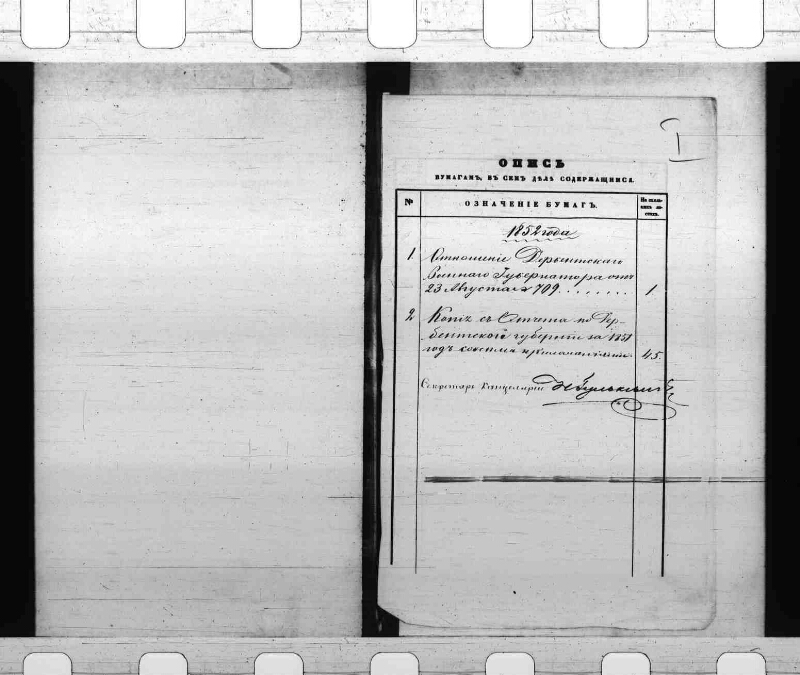 I
ОПИСЬ
БУМАГАМЪ, ВЪ СЕМЪ ДѢЛѢ СОДЕРЖАЩИМСЯ.
№
ОЗНАЧЕНІЕ БУМАГЪ.
1852 года
1 Отношеніе Дербентскаго
Военнаго Губернатора отъ
23 Августа № 709 . . . . . . . . 1.
2 Копія съ Отчета по Дер-
бентской губерніи за 1851
годъ 45.
Секретарь Канцеляріи